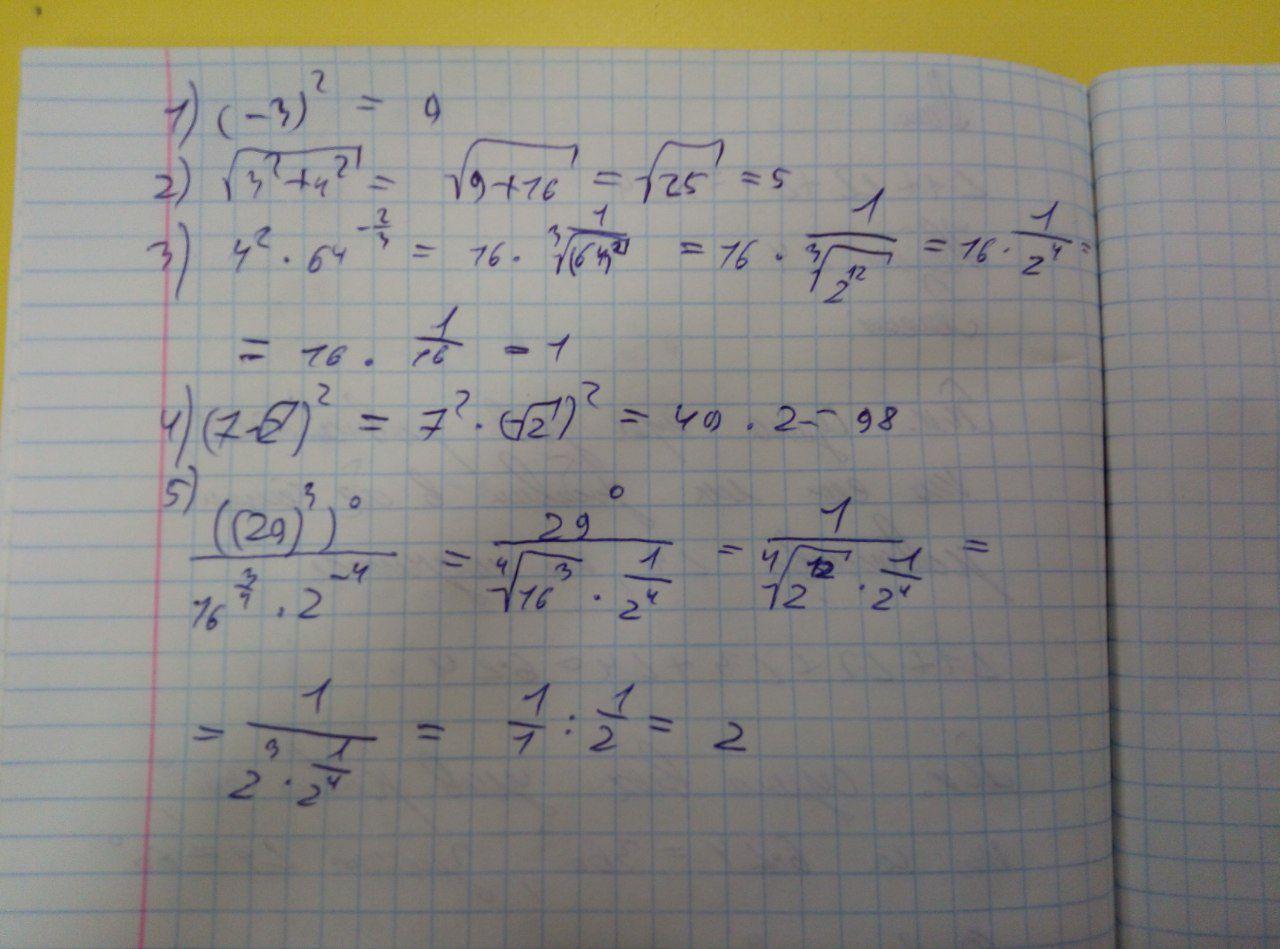 1) (-3)² = 9
2) √(3²+4²) = √(9+16) = √25 = 5
3) 4² · 64^(-2/3) = 16 · 1/∛(64)² = 16 · 1/∛(2¹²) = 16 · 1/2⁴ =
= 16 · 1/16 = 1
4) (7-√2)² = 7² · (-√2)² = 49 · 2 = 98
5) ((29)³)⁰ / (16^(3/4) · 2⁻⁴) = 29⁰ / (∜(16³) · 1/2⁴) = 1 / (∜(2¹²) · 1/2⁴) =
= 1 / (2³ · 1/2⁴) = 1/1 : 1/2 = 2